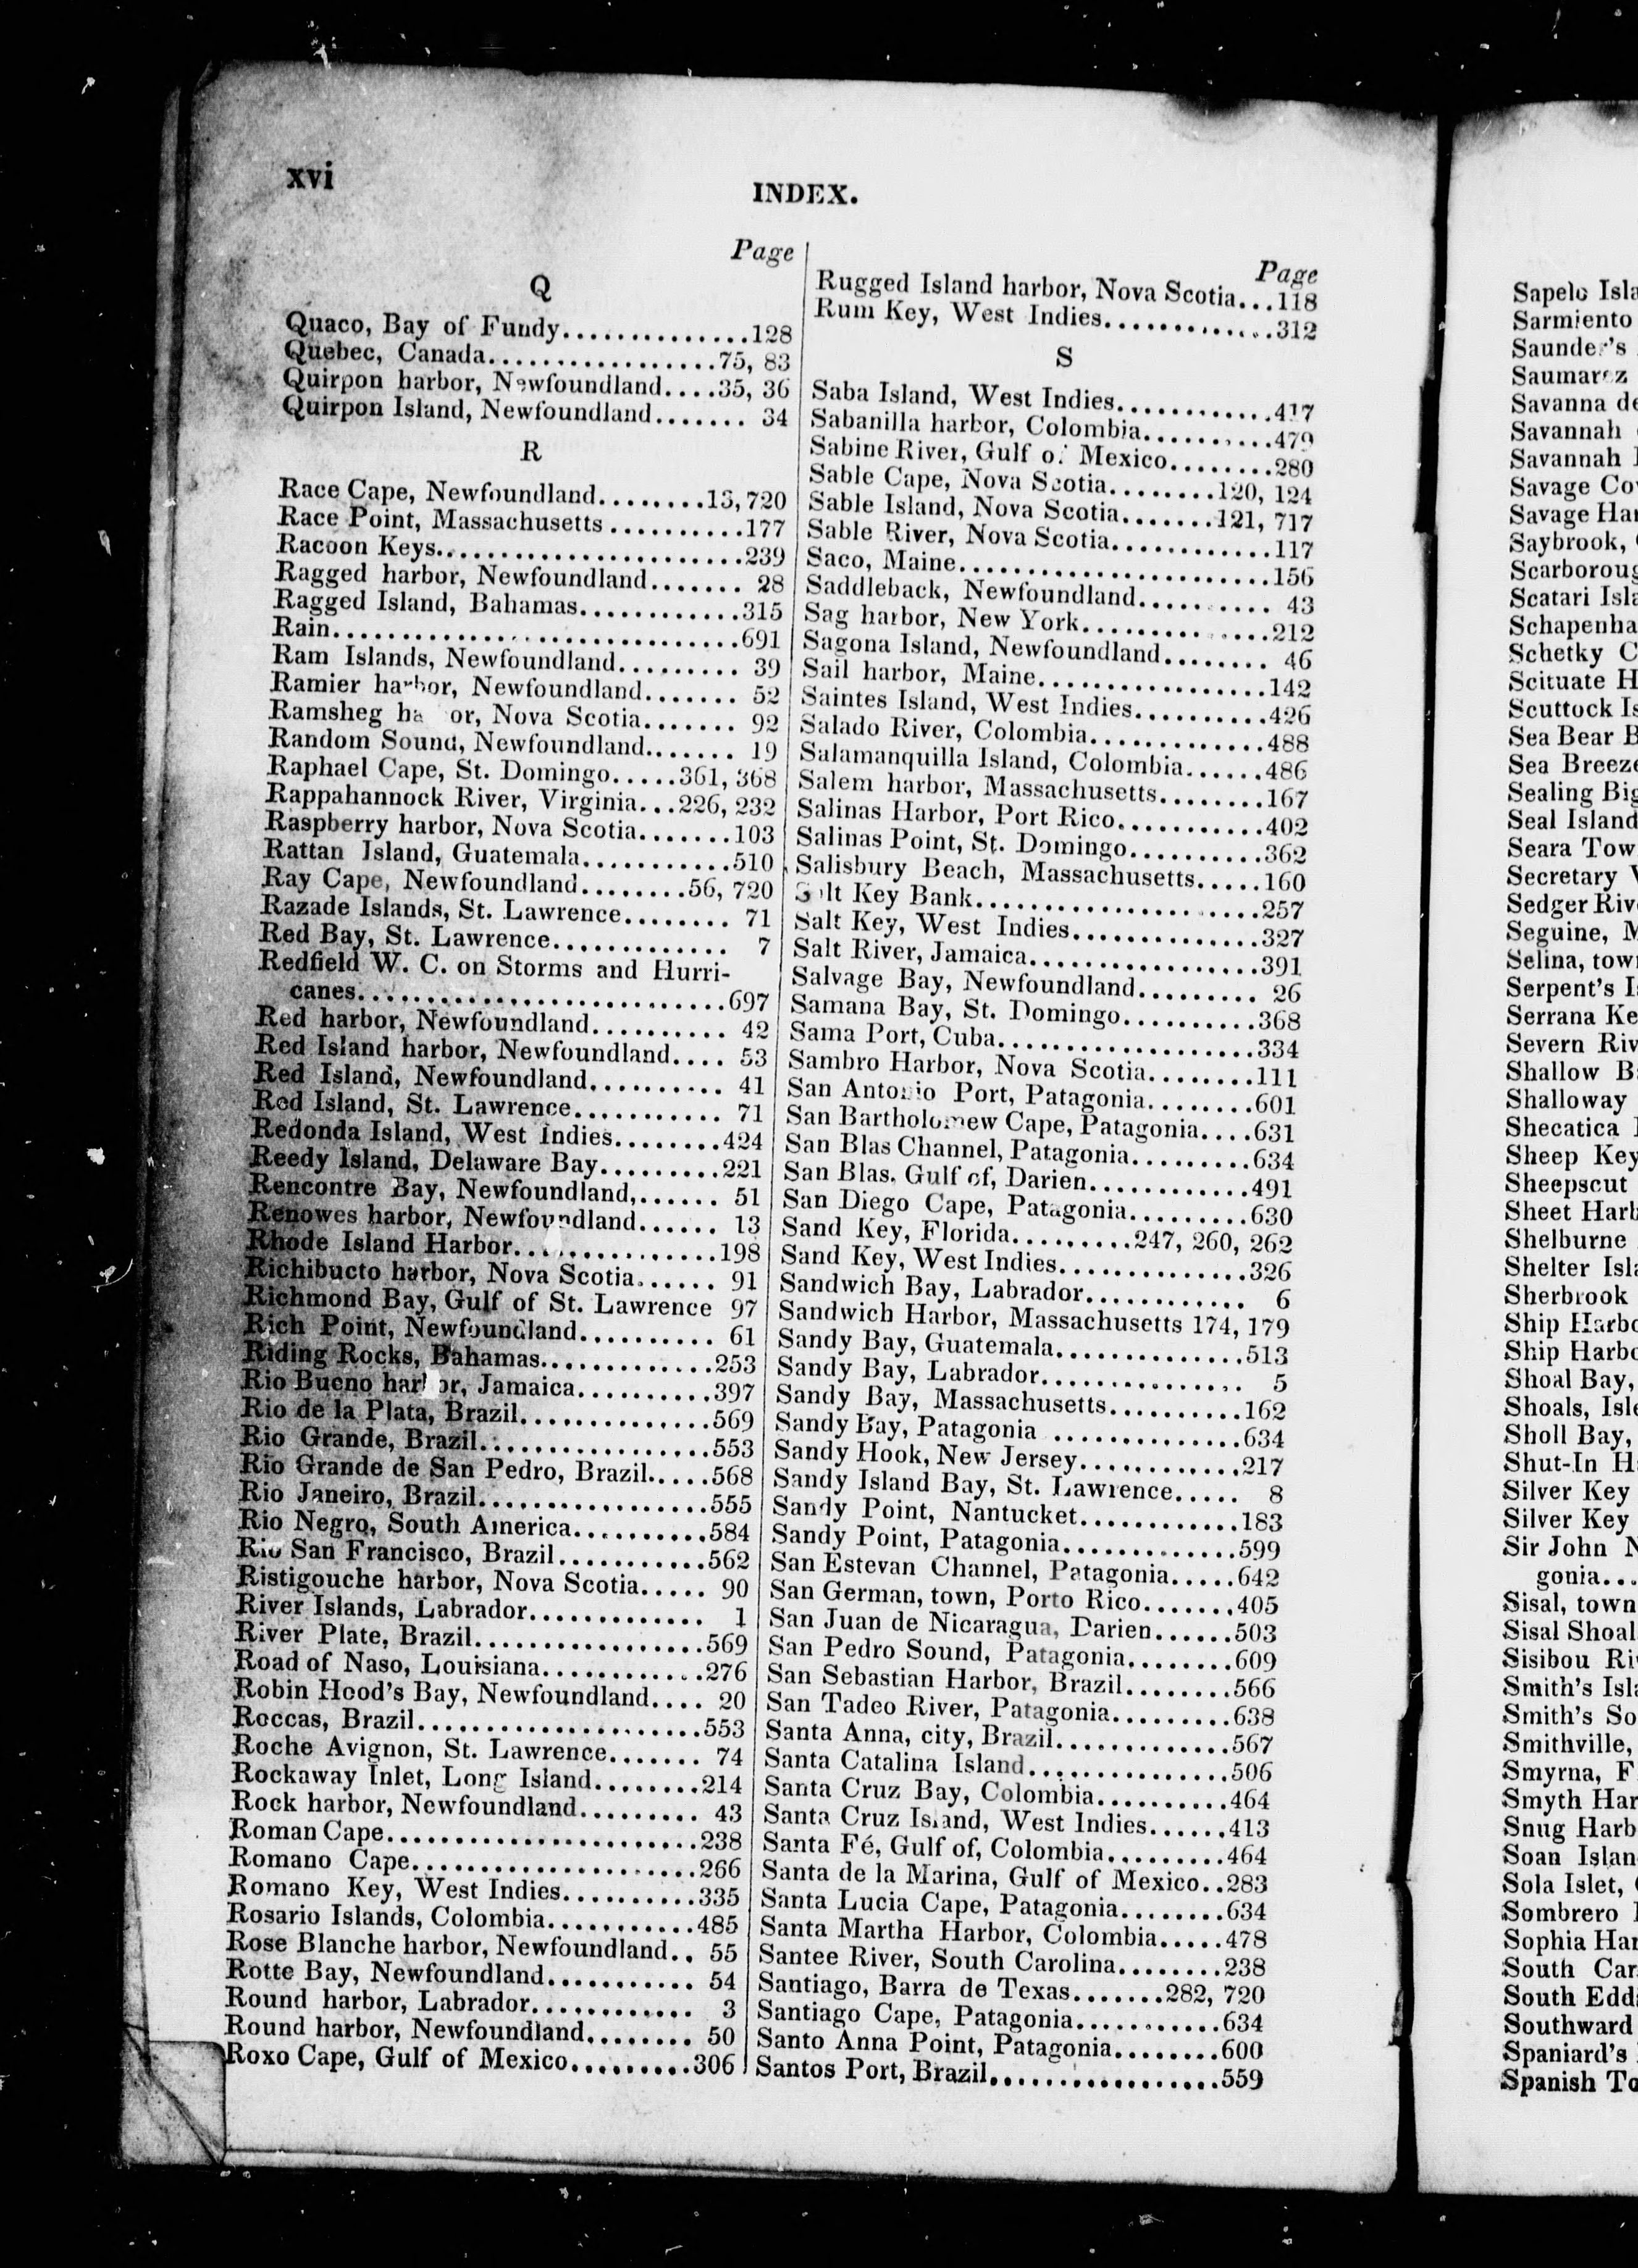 xvi
INDEX.
Page
Q
Quaco, Bay of Fundy...............128
Quebec, Canada..................75, 83
Quirpon harbor, Newfoundland....35, 36
Quirpon Island, Newfoundland....... 34
R
Race Cape, Newfoundland.........13, 720
Race Point, Massachusetts ...........177
Racoon Keys.........................239
Ragged harbor, Newfoundland....... 28
Ragged Island, Bahamas.............315
Rain.................................691
Ram Islands, Newfoundland.......... 39
Ramier harbor, Newfoundland....... 52
Ramsheg ha or, Nova Scotia....... 92
Random Sound, Newfoundland....... 19
Raphael Cape, St. Domingo.....361, 368
Rappahannock River, Virginia...226, 232
Raspberry harbor, Nova Scotia.......103
Rattan Island, Guatemala............510
Ray Cape, Newfoundland........56, 720
Razade Islands, St. Lawrence........ 71
Red Bay, St. Lawrence.............. 7
Redfield W. C. on Storms and Hurri-
canes..............................697
Red harbor, Newfoundland........... 42
Red Island harbor, Newfoundland.... 53
Red Island, Newfoundland........... 41
Red Island, St. Lawrence............ 71
Redonda Island, West Indies.........424
Reedy Island, Delaware Bay..........221
Rencontre Bay, Newfoundland,...... 51
Renowes harbor, Newfoundland...... 13
Rhode Island Harbor.................198
Richibucto harbor, Nova Scotia...... 91
Richmond Bay, Gulf of St. Lawrence 97
Rich Point, Newfoundland........... 61
Riding Rocks, Bahamas..............253
Rio Bueno har or, Jamaica...........397
Rio de la Plata, Brazil................569
Rio Grande, Brazil...................553
Rio Grande de San Pedro, Brazil.....568
Rio Janeiro, Brazil...................555
Rio Negro, South America...........584
Rio San Francisco, Brazil............562
Ristigouche harbor, Nova Scotia..... 90
River Islands, Labrador.............. 1
River Plate, Brazil...................569
Road of Naso, Louisiana.............276
Robin Hood's Bay, Newfoundland.... 20
Roccas, Brazil.......................553
Roche Avignon, St. Lawrence....... 74
Rockaway Inlet, Long Island.........214
Rock harbor, Newfoundland.......... 43
Roman Cape.........................238
Romano Cape.......................266
Romano Key, West Indies...........335
Rosario Islands, Colombia............485
Rose Blanche harbor, Newfoundland.. 55
Rotte Bay, Newfoundland............ 54
Round harbor, Labrador............. 3
Round harbor, Newfoundland......... 50
Roxo Cape, Gulf of Mexico..........306
Page
Rugged Island harbor, Nova Scotia...118
Rum Key, West Indies..............312
S
Saba Island, West Indies.............417
Sabanilla harbor, Colombia...........479
Sabine River, Gulf of Mexico.........280
Sable Cape, Nova Scotia.........120, 124
Sable Island, Nova Scotia........121, 717
Sable River, Nova Scotia.............117
Saco, Maine.........................156
Saddleback, Newfoundland........... 43
Sag harbor, New York...............212
Sagona Island, Newfoundland........ 46
Sail harbor, Maine...................142
Saintes Island, West Indies...........426
Salado River, Colombia..............488
Salamanquilla Island, Colombia.......486
Salem harbor, Massachusetts.........167
Salinas Harbor, Port Rico............402
Salinas Point, St. Domingo...........362
Salisbury Beach, Massachusetts......160
Salt Key Bank.......................257
Salt Key, West Indies................327
Salt River, Jamaica...................391
Salvage Bay, Newfoundland.......... 26
Samana Bay, St. Domingo...........368
Sama Port, Cuba....................334
Sambro Harbor, Nova Scotia.........111
San Antonio Port, Patagonia.........601
San Bartholomew Cape, Patagonia....631
San Blas Channel, Patagonia..........634
San Blas, Gulf of, Darien.............491
San Diego Cape, Patagonia..........630
Sand Key, Florida..........247, 260, 262
Sand Key, West Indies...............326
Sandwich Bay, Labrador............. 6
Sandwich Harbor, Massachusetts 174, 179
Sandy Bay, Guatemala...............513
Sandy Bay, Labrador................. 5
Sandy Bay, Massachusetts...........162
Sandy Bay, Patagonia ...............634
Sandy Hook, New Jersey.............217
Sandy Island Bay, St. Lawrence..... 8
Sandy Point, Nantucket..............183
Sandy Point, Patagonia...............599
San Estevan Channel, Patagonia......642
San German, town, Porto Rico........405
San Juan de Nicaragua, Darien.......503
San Pedro Sound, Patagonia.........609
San Sebastian Harbor, Brazil.........566
San Tadeo River, Patagonia..........638
Santa Anna, city, Brazil..............567
Santa Catalina Island.................506
Santa Cruz Bay, Colombia...........464
Santa Cruz Island, West Indies.......413
Santa Fé, Gulf of, Colombia..........464
Santa de la Marina, Gulf of Mexico..283
Santa Lucia Cape, Patagonia.........634
Santa Martha Harbor, Colombia.....478
Santee River, South Carolina.........238
Santiago, Barra de Texas.......282, 720
Santiago Cape, Patagonia............634
Santo Anna Point, Patagonia.........600
Santos Port, Brazil...................559
Sapelo Isla
Sarmiento
Saunder's
Saumarez
Savanna de
Savannah
Savannah
Savage Co
Savage Har
Saybrook,
Scarboroug
Scatari Isla
Schapenha
Schetky C
Scituate H
Scuttock Is
Sea Bear B
Sea Breeze
Sealing Big
Seal Island
Seara Tow
Secretary
Sedger Riv
Seguine, M
Selina, town
Serpent's I
Serrana Ke
Severn Riv
Shallow B
Shalloway
Shecatica
Sheep Key
Sheepscut
Sheet Harb
Shelburne
Shelter Isla
Sherbrook
Ship Harbo
Ship Harbo
Shoal Bay,
Shoals, Isle
Sholl Bay,
Shut-In H
Silver Key
Silver Key
Sir John N
gonia...
Sisal, town
Sisal Shoal
Sisibou Ri
Smith's Isla
Smith's So
Smithville,
Smyrna, F
Smyth Har
Snug Harb
Soan Islan
Sola Islet,
Sombrero
Sophia Har
South Car
South Edd
Southward
Spaniard's
Spanish To